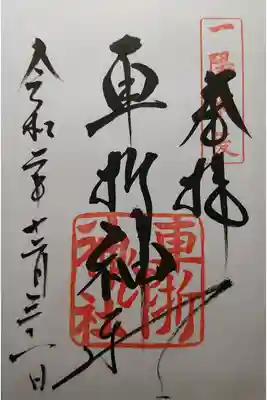 奉拝
車折神社
車折
神社
令和二年十二月三十一日